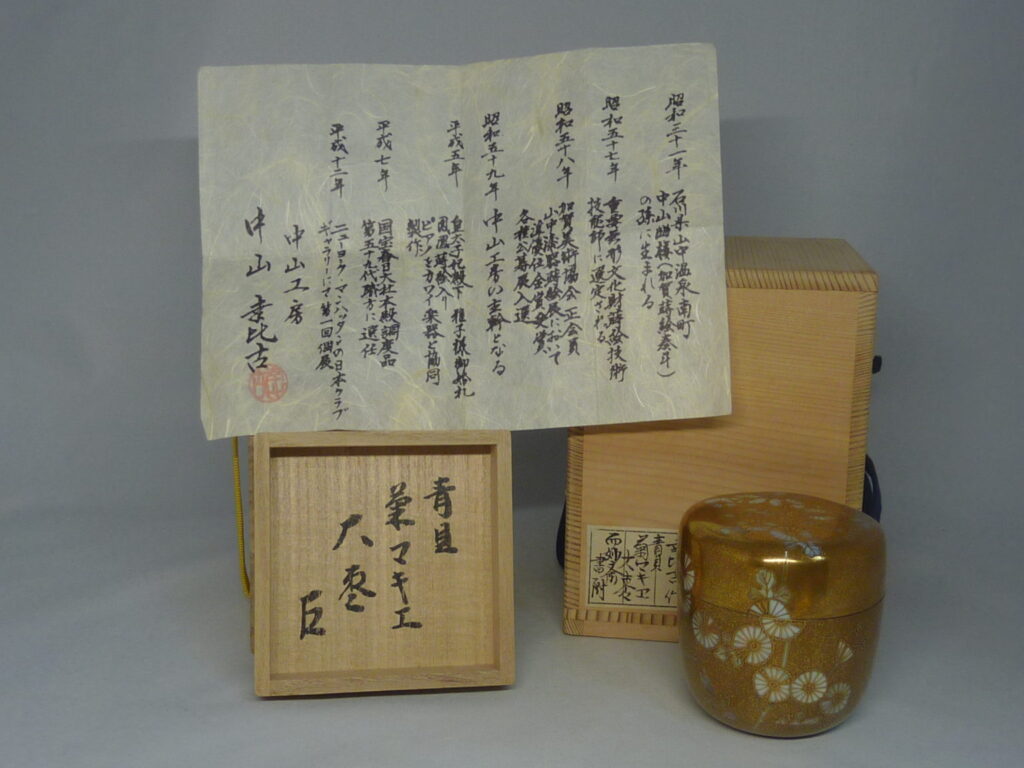 昭和三十一年 石川県山中温泉南町
中山
の孫に生まれる
昭和五十七年 重要無形文化財蒔絵技術
技能師に選定される
昭和五十八年 加賀美術協会正会員
山中漆器蒔絵展において
各種公募展入選
昭和五十九年 中山工房の主幹となる
平成五年 皇太子殿下 雅子様御婚礼
鳳凰蒔絵入り
ピアノをカワイ楽器と協同
製作
平成七年 国宝春日大社本殿調度品
第五十七代
に選任
平成十二年 ニューヨーク・マンハッタンの日本クラブ
ギャラリーにて第一回個展
中山工房
中山 幸比古
青貝
菊マキエ
大棗
匠
青貝
菊マキヱ
大棗
書附